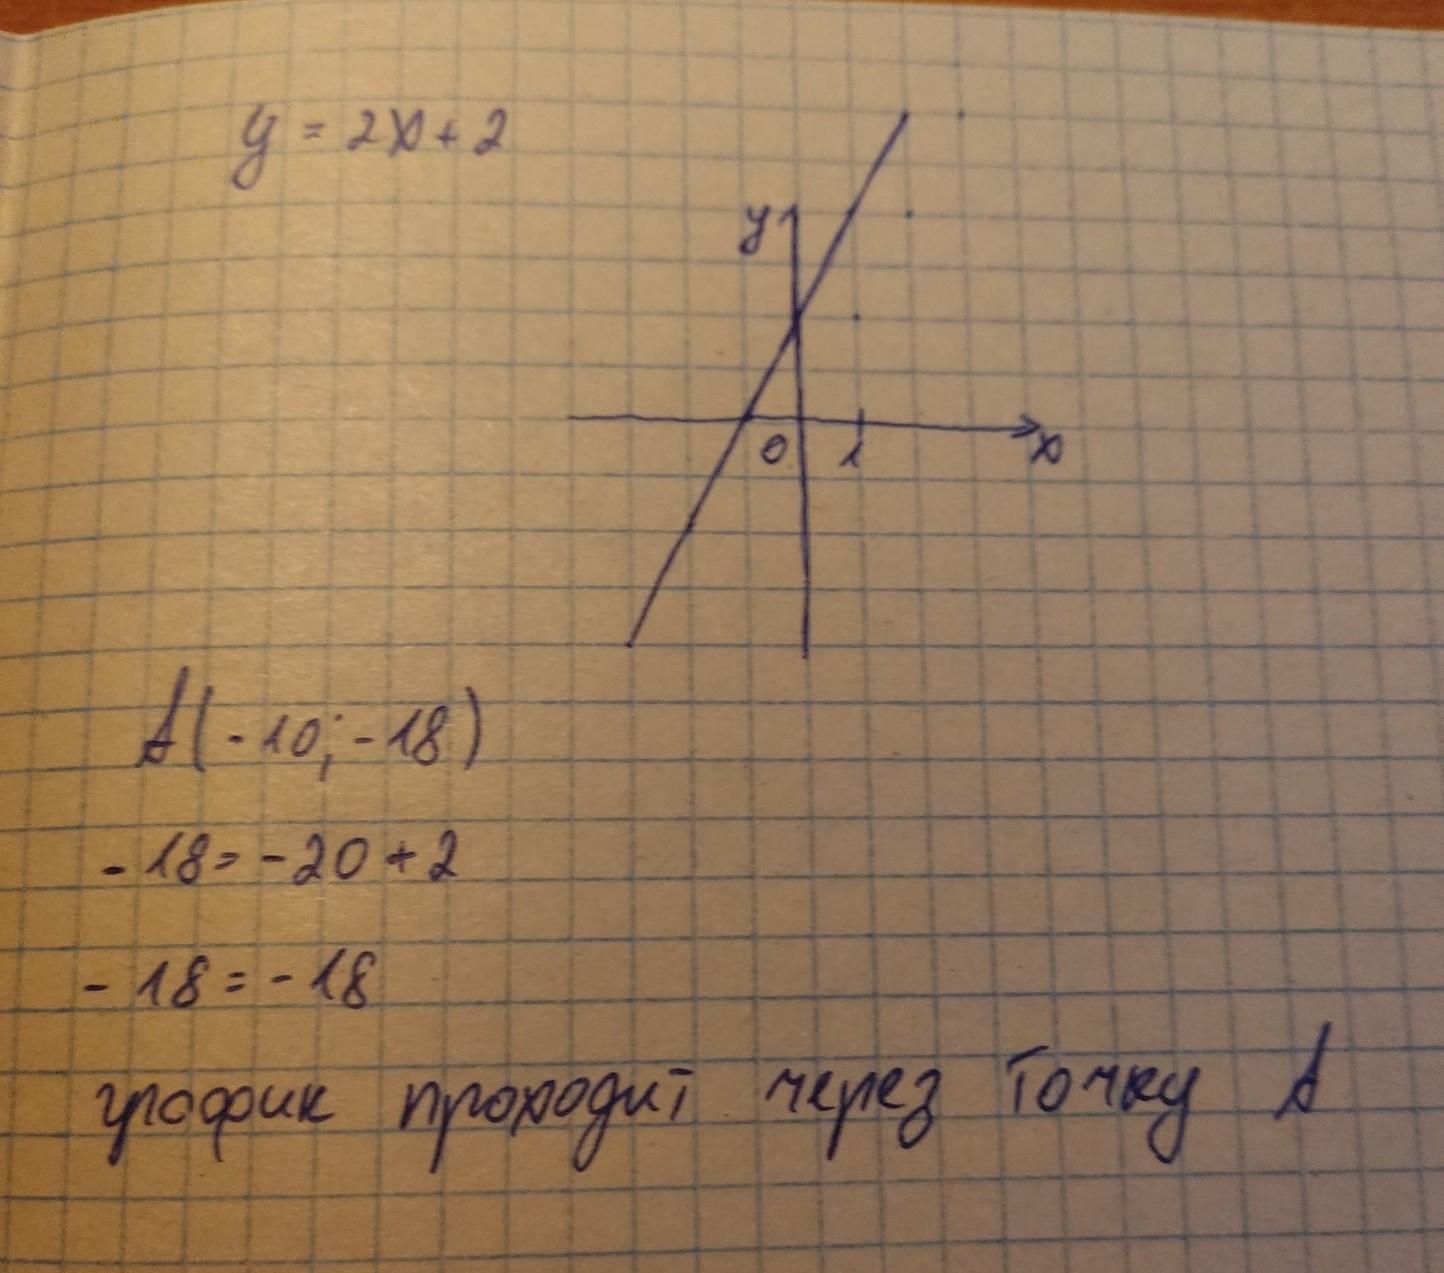 y = 2x + 2
y
0 1 x
A(-10; -18)
-18 = -20 + 2
-18 = -18
график проходит через точку A